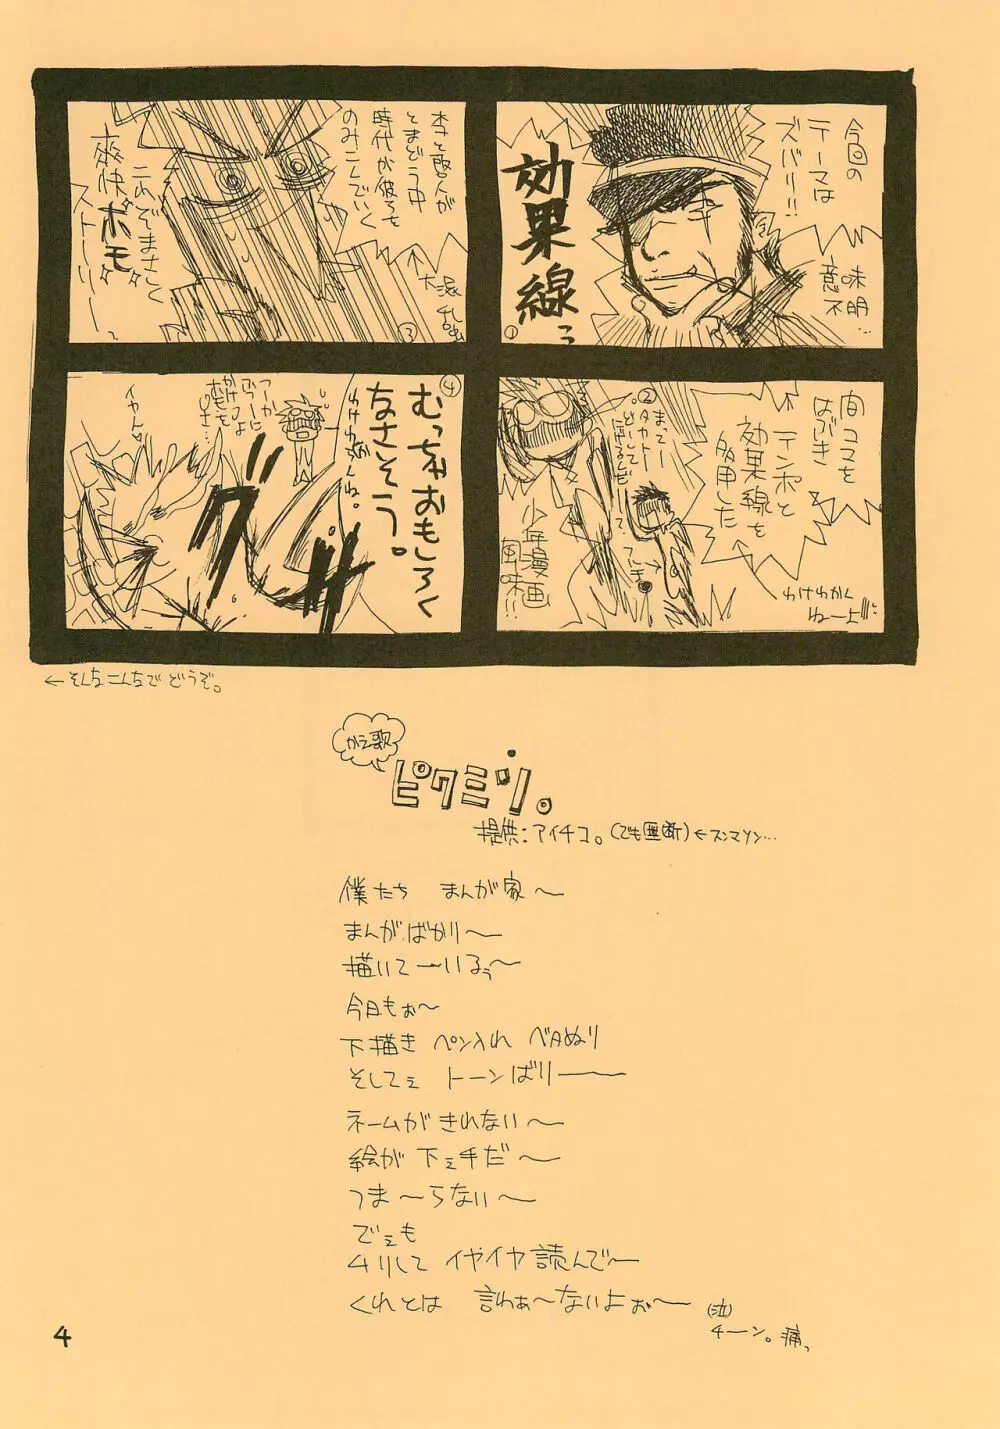 今回の
テーマは
ズバリ!!
効果線っ
意味
不明…
①
間コマを
はぶき
テンポと
効果線を
多用した
②
まってー
タカトー
どうして
少年漫画
風味!!
わけわかく
ねーよ!!!
本で読んが
とまどう中
時代が彼らを
のみこんでいく
これぞまさしく
爽快ホモ
ストーリーっ
③
④
むっちゃおもしろく
なさそう。
わけわかんね。
つーか
フツーに
かけるよ
おもも
イヤん
グサ
←そんなこんなでどうぞ。
かえ歌
ピクミン。
提供:アイチコ。(でも無断)←スンマソン…
僕たち まんが家〜
まんがばかり〜
描いてーいるぅ〜
今日もぉ〜
下描き ペン入れ ベタぬり
そしてぇ トーンばりー
ネームが きれない〜
絵が 下ぇ手だ〜
つま〜らない〜
でぇも
ムリして イヤイヤ 読んで〜
くれとは 言わぁ〜ないよぉ〜
(泣)
チーン。痛っ
4